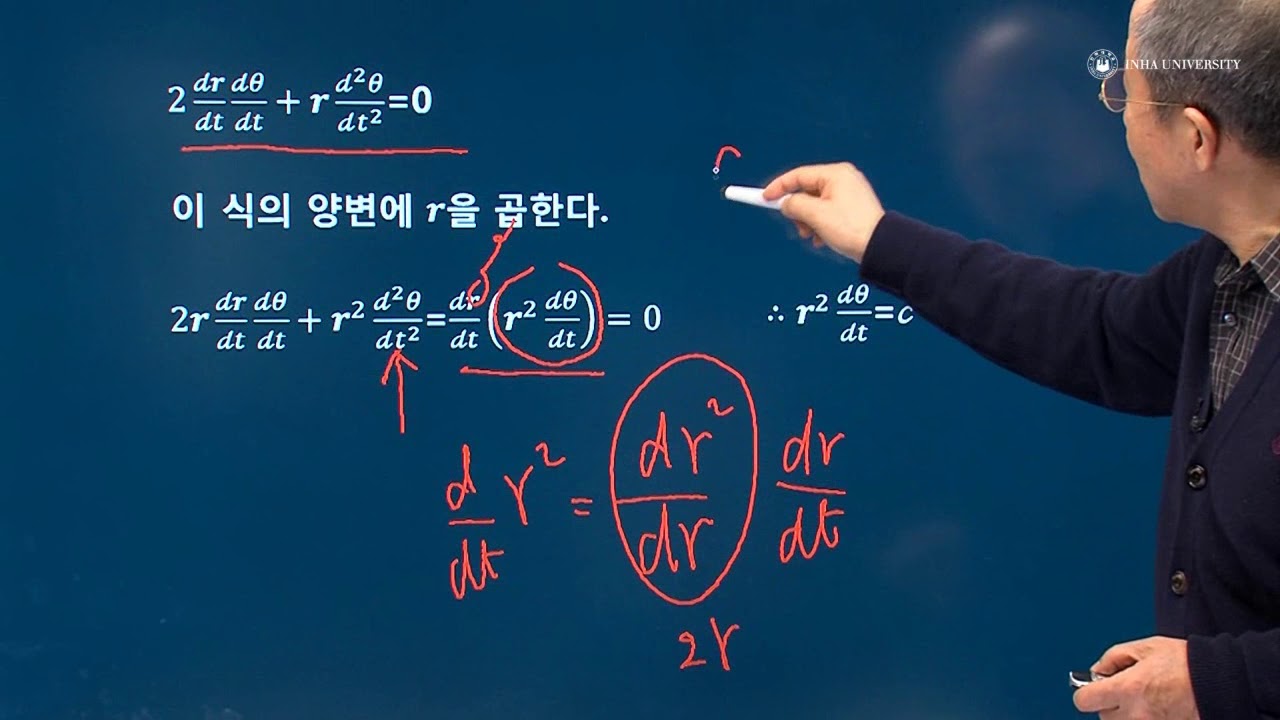 INHA UNIVERSITY
2 dr/dt dθ/dt + r d²θ/dt² =0
이 식의 양변에 r을 곱한다.
2r dr/dt dθ/dt + r² d²θ/dt² = dr/dt (r² dθ/dt) = 0
∴ r² dθ/dt =c
d/dt r² = dr²/dr dr/dt
2r